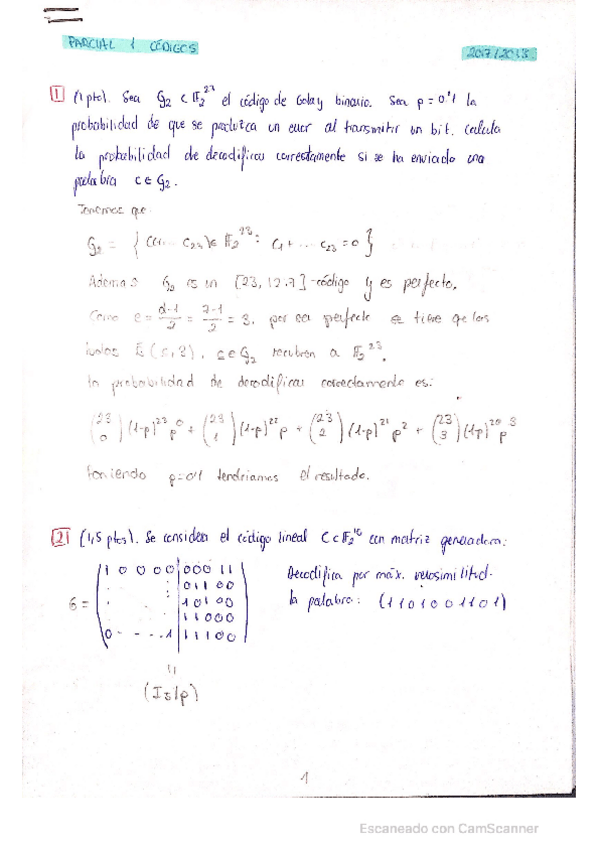 PARCIAL 1 CÓDIGOS
2017/2018
1 (1 pto). Sea G₂ ⊂ F₂²³ el código de Golay binario. Sea p = 0'1 la
probabilidad de que se produzca un error al transmitir un bit. Calcula
la probabilidad de decodificar correctamente si se ha enviado una
palabra c ∈ G₂.
Tenemos que
G₂ = { (c₁ ... c₂₃) ∈ F₂²³ : c₁ + ... c₂₃ = 0 }
Además G₂ es un [23, 12, 7] - código y es perfecto.
Como e = d-1/2 = 7-1/2 = 3, por ser perfecto se tiene que las
bolas B(c, 3), c ∈ G₂ recubren a F₂²³.
la probabilidad de decodificar correctamente es:
(23 0) (1-p)²³ p⁰ + (23 1) (1-p)²² p + (23 2) (1-p)²¹ p² + (23 3) (1-p)²⁰ p³
poniendo p=0'1 tendríamos el resultado.
2 (1,5 ptos). Se considera el código lineal C ⊂ F₂¹⁰ con matriz generadora:
1 0 0 0 0 | 0 0 0 1 1
0 1 1 0 0
G = 1 0 1 0 0
1 1 0 0 0
0 - - - . 1 | 1 1 1 0 0
Decodifica por máx. verosimilitud.
la palabra: (1 1 0 1 0 0 1 1 0 1)
(I₅|p)
1
Escaneado con CamScanner